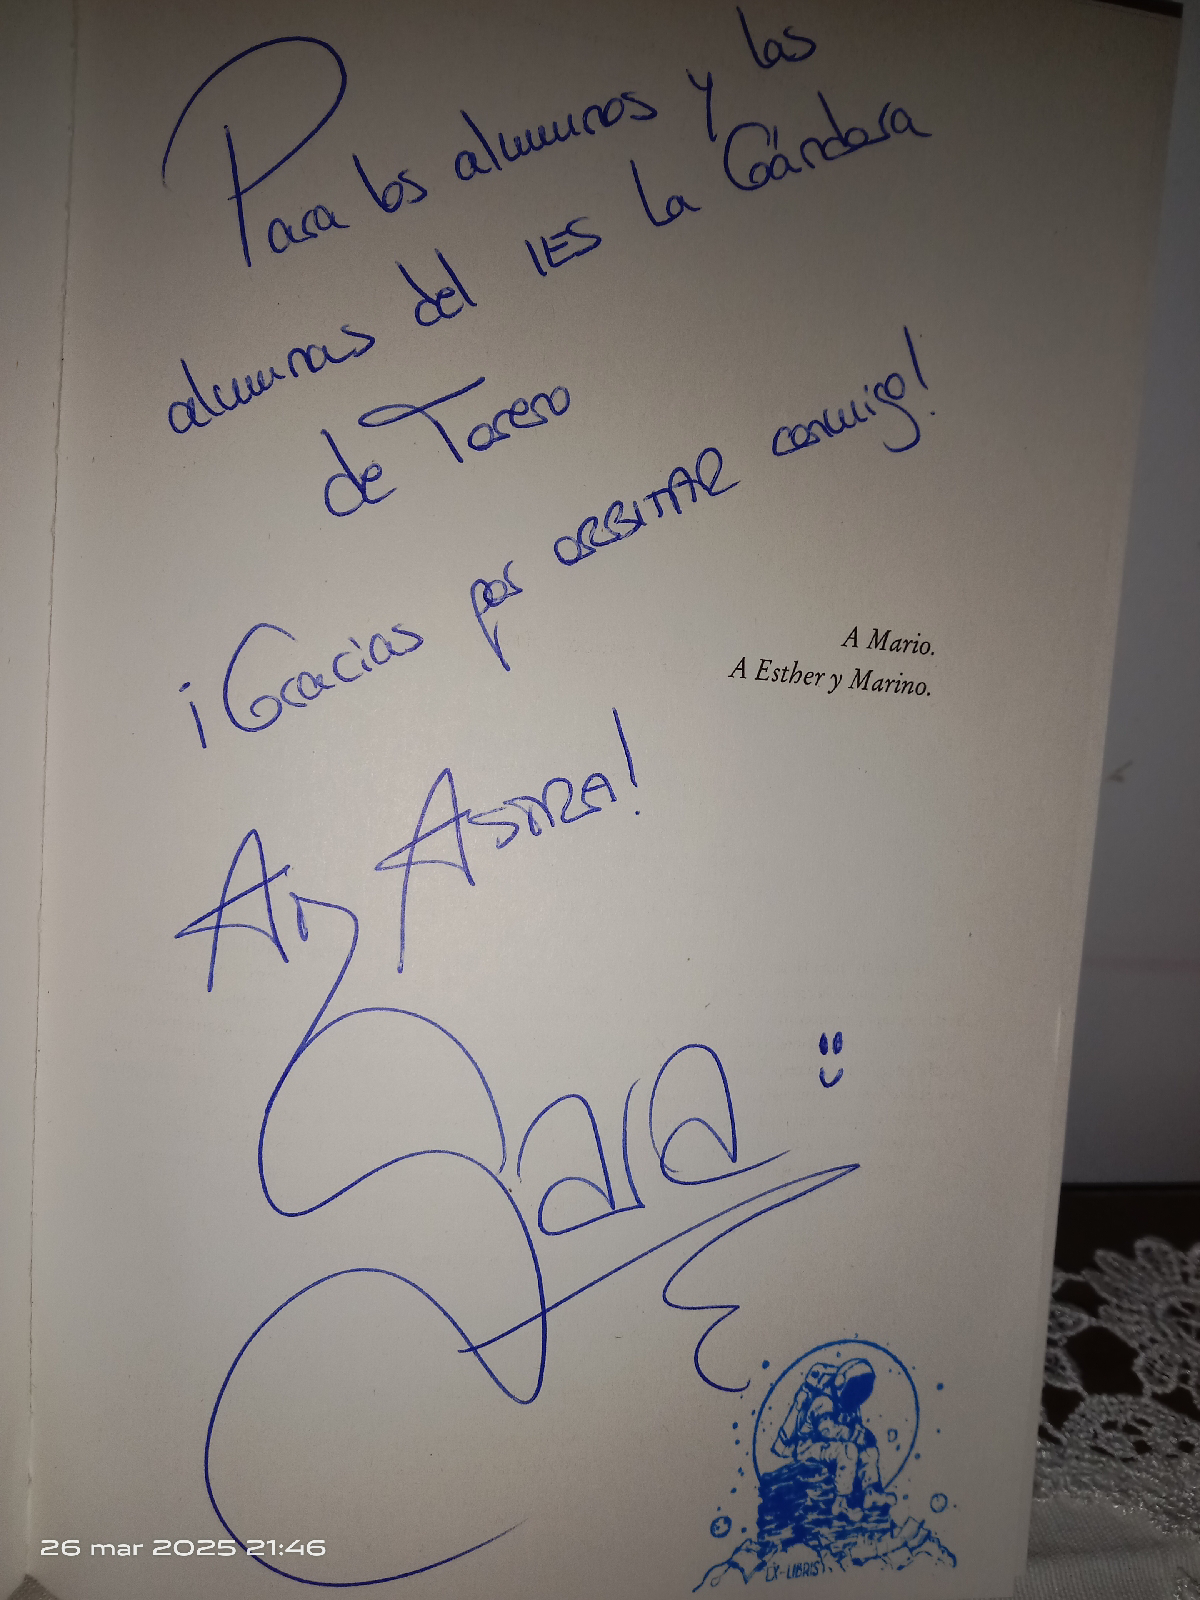 Para los alumnos y las
alumnas del IES La Gándara
de Toreno
¡Gracias por ORBITAR conmigo!
A Mario.
A Esther y Marino.
AD ASTRA!
Sara
EX-LIBRIS
26 mar 2025 21:46